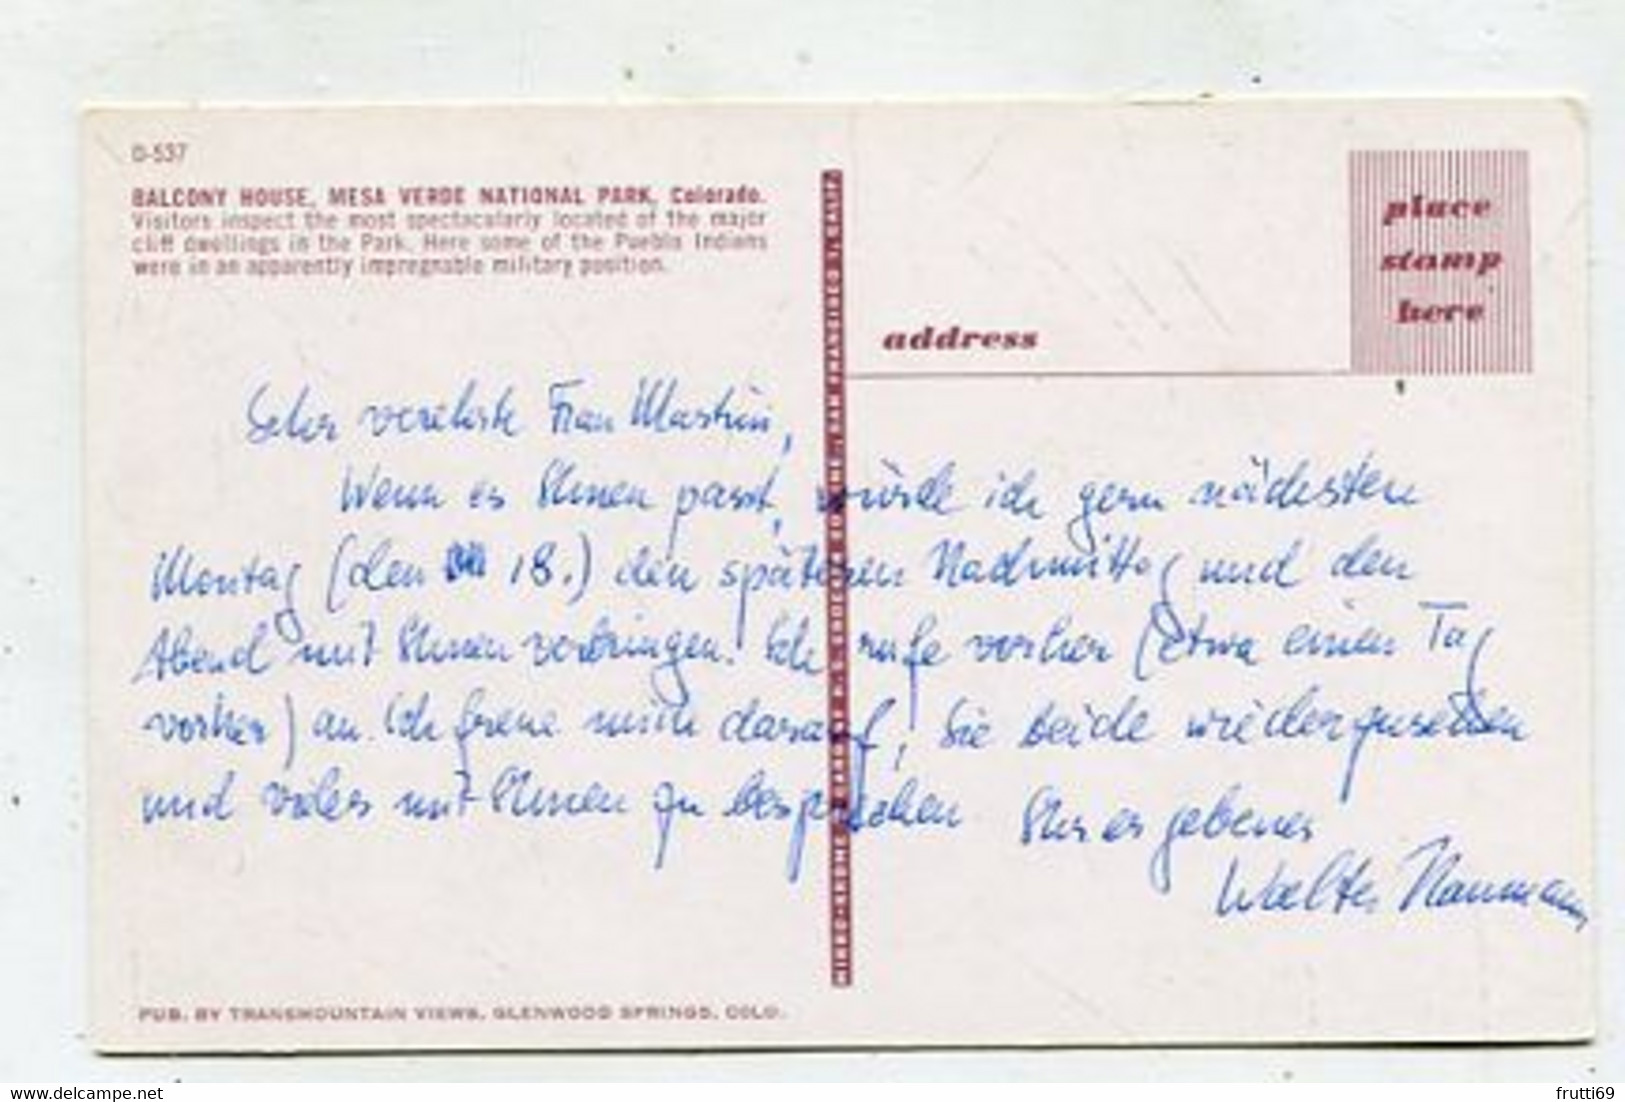 D-537
BALCONY HOUSE, MESA VERDE NATIONAL PARK, Colorado.
Visitors inspect the most spectacularly located of the major
cliff dwellings in the Park. Here some of the Pueblo Indians
were in an apparently impregnable military position.
place
stamp
here
address
Sehr verehrte Frau Martini,
Wenn es Ihnen passt, würde ich gern nächsten
Montag (den 18.) den späteren Nachmittag und den
Abend mit Ihnen verbringen. Ich rufe vorher (etwa einen Tag
vorher) an. Ich freue mich darauf, Sie beide wiederzusehen
und vieles mit Ihnen zu besprechen. Ihr ergebener
Walter Naumann
PUB. BY TRANSMOUNTAIN VIEWS, GLENWOOD SPRINGS, COLO.
frutti69